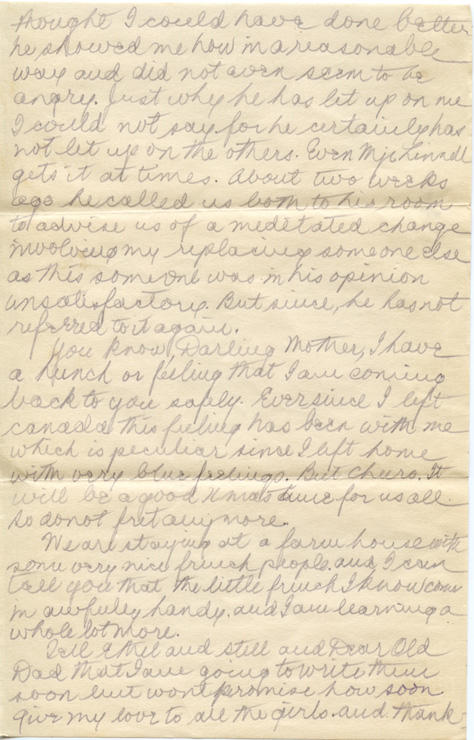 thought I could have done better
he showed me how in a reasonable
way and did not even seem to be
angry. Just why he has let up on me
I could not say, for he certainly has
not let up on the others. Even
gets it at times. About two weeks
ago he called us both to his room
to advise us of a meditated change
involving my replacing someone else
as this someone was in his opinion
unsatisfactory. But since, he has not
referred to it again.
You know, Darling Mother, I have
a hunch or feeling that I am coming
back to you safely. Ever since I left
Canada this feeling has been with me
which is peculiar since I left home
with very blue feelings. But cheero. It
will be a good Xmas time for us all.
so do not fret any more.
We are staying at a farm house with
some very nice french people. and I can
tell you that the little french I know come
in awfully handy. and I am learning a
whole lot more.
Tell Ethel and still and Dear Old
Dad that I am going to write them
soon but wont promise how soon
Give my love to all the girls. and thank